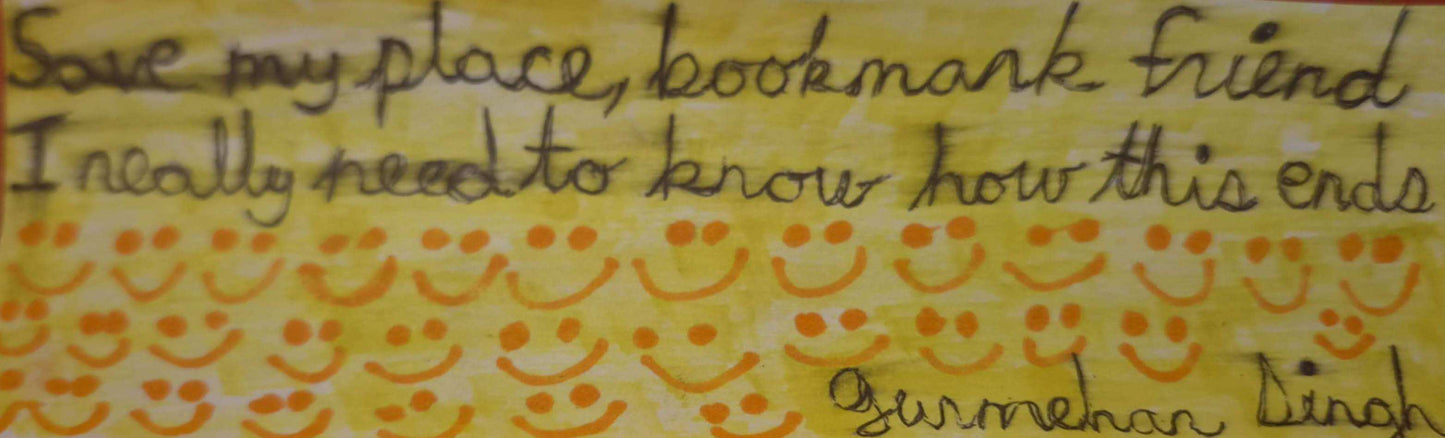 Save my place, bookmark friend
I really need to know how this ends
Gurmehar Singh